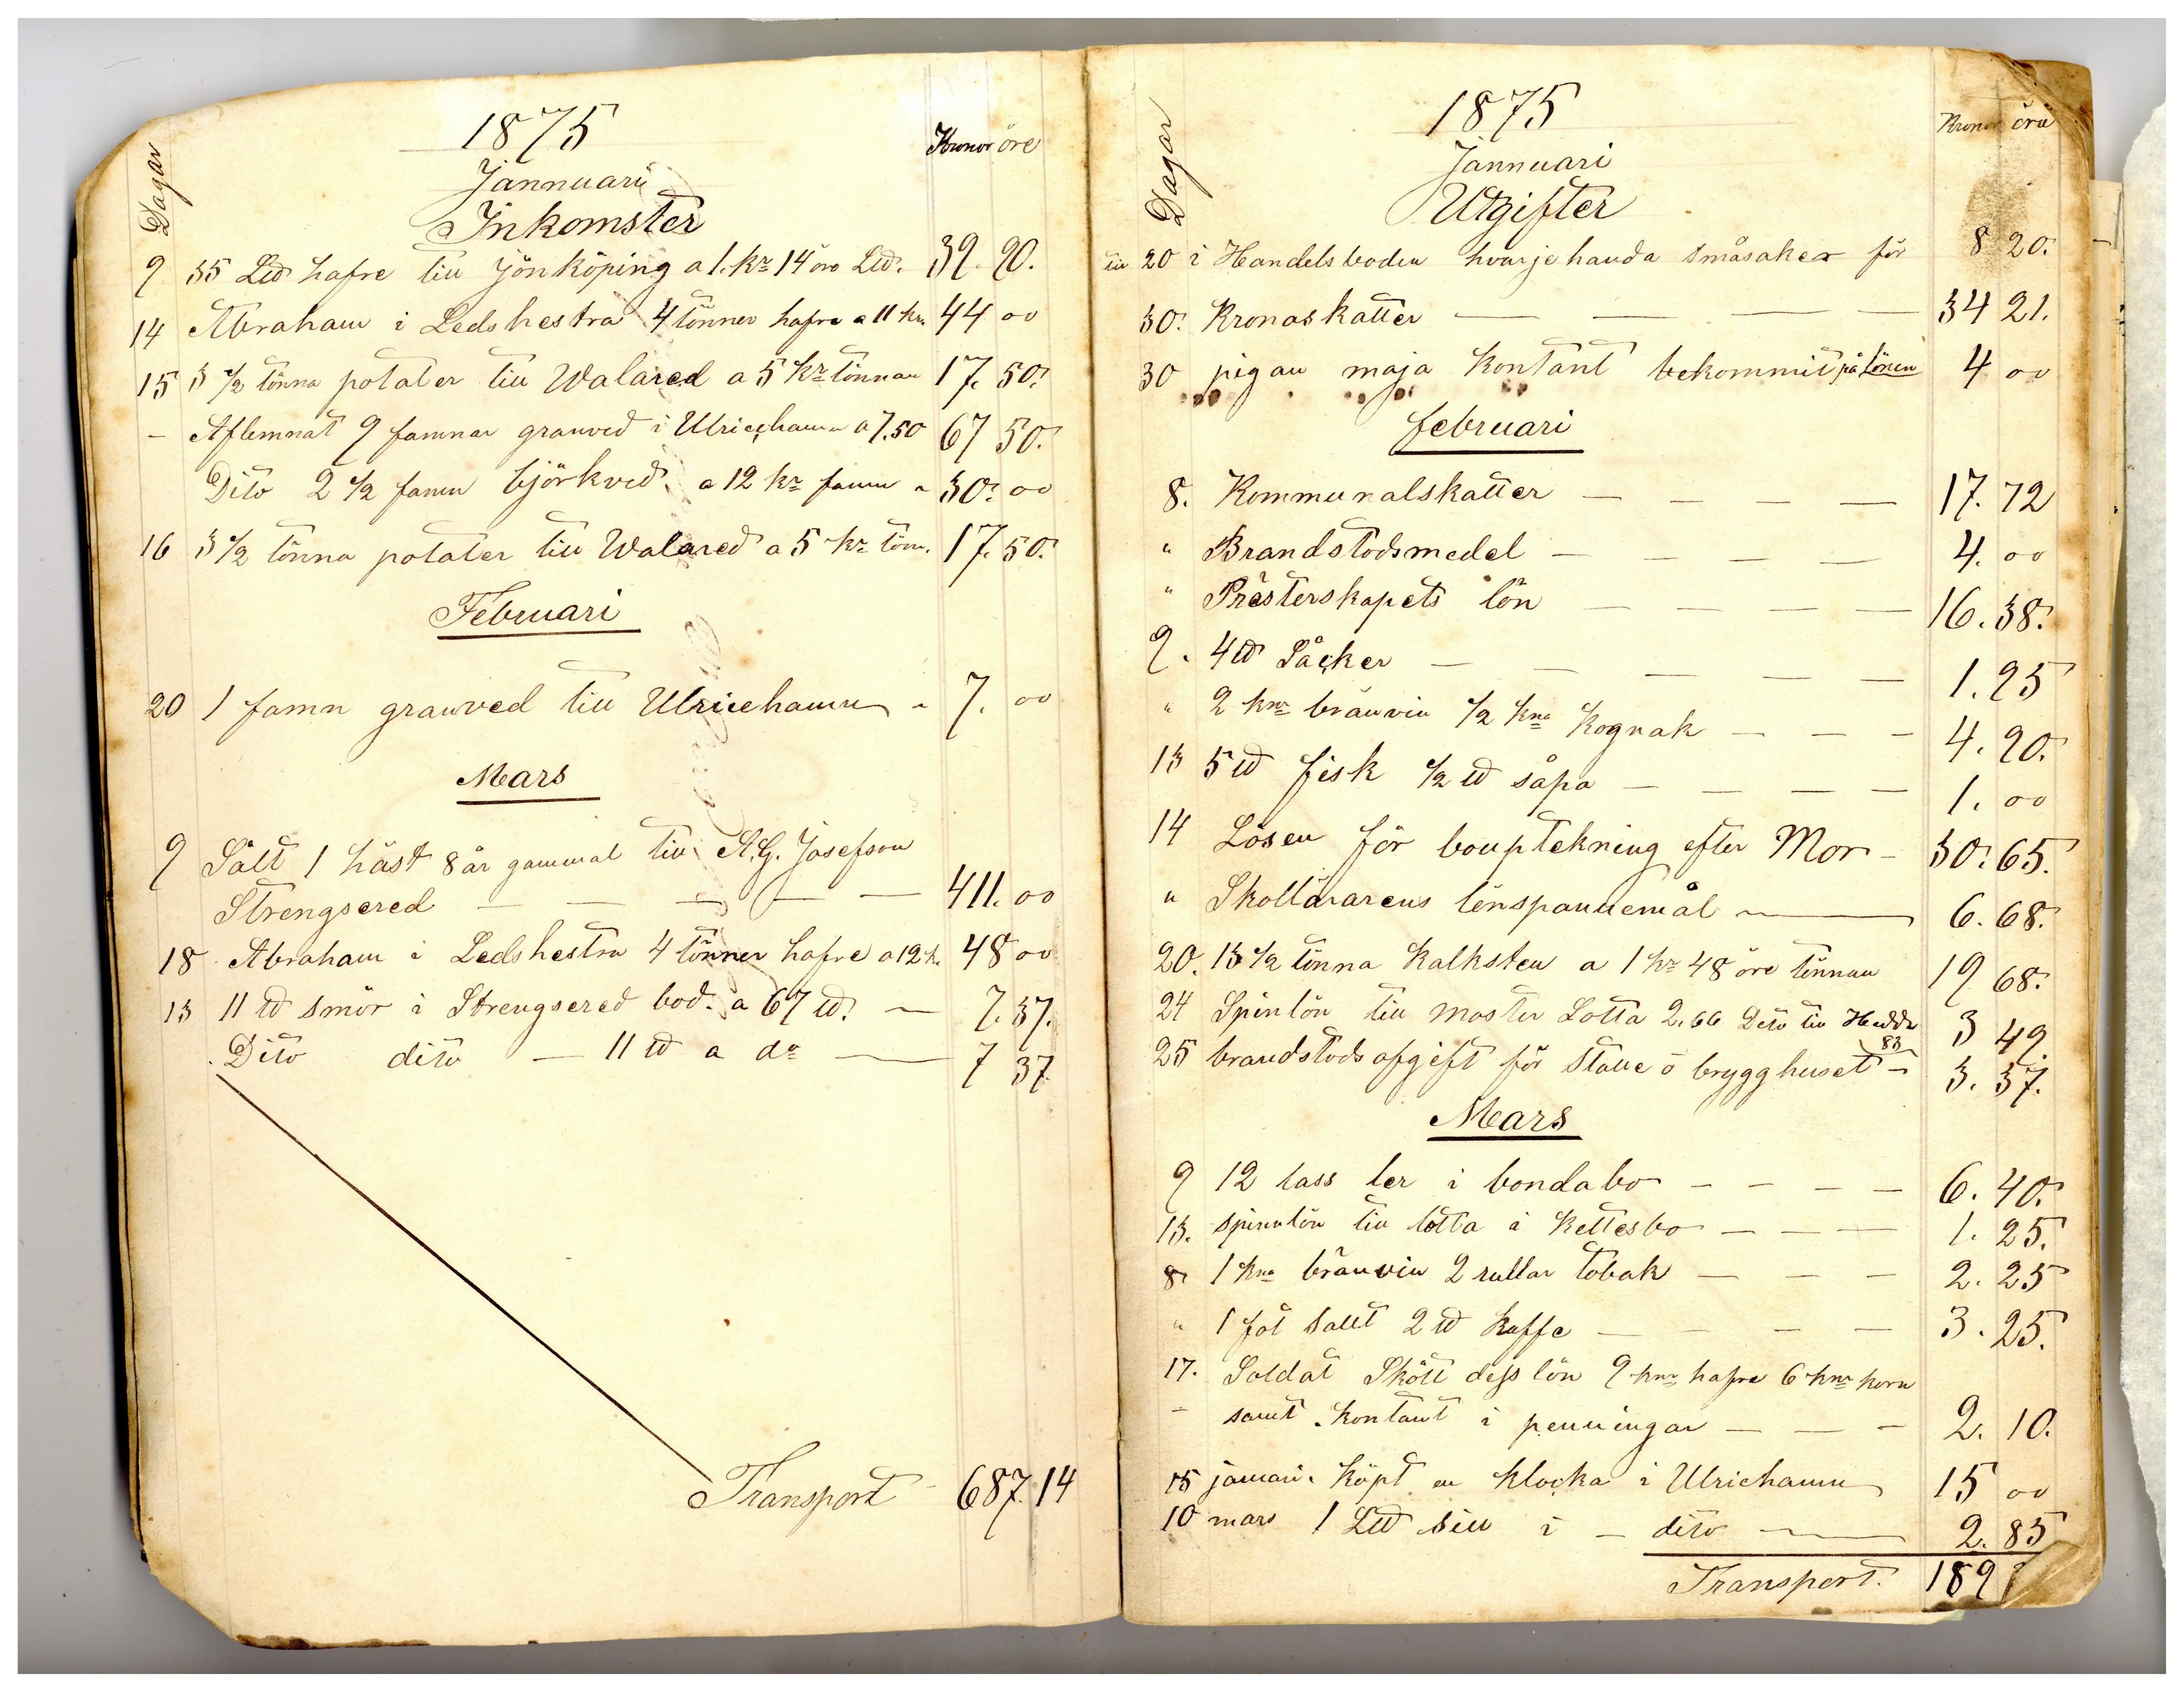 1875
Jannuari
Inkomster
Dagar
Kronor öre
9 35 L℔ hafre till Jönköping a 1. kr 14 öre L℔. 39. 90.
14 Abraham i Ledshestra 4 tönner hafre a 11 kr. 44 00
15 3 1/2 tönna potater till Walared a 5 kr tönnan 17. 50.
- Aflemnat 9 famnar granved i Ulricehamn a 7.50 67 50.
Dito 2 1/2 famn björkved a 12 kr famn - 30. 00
16 3 1/2 tönna potater till Walared a 5 kr tönn. 17. 50.
Februari
20 1 famn granved till Ulricehamn - 7. 00
Mars
9 Sålt 1 häst 8 år gammal till A.G. Josefson
Strengsered — — — — — 411. 00
18 Abraham i Ledshestra 4 tönner hafre a 12 k. 48 00
13 11 ℔ smör i Strengsered bod. a 67 ℔. — 7. 37.
Dito dito — 11 ℔ a do — 7 37
Transport 687. 14
1875
Jannuari
Utgifter
Dagar
Kronor öre
till 20 i Handelsboden hvarjehanda småsaker för 8 20.
30. Kronoskatter — — — — 34 21.
30 pigan maja kontant bekommit på Lönen 4 00
februari
8. Kommunalskatter — — — — 17. 72
" Brandstodsmedel — — — — 4. 00
" Prästerskapets lön — — — — 16. 38.
9. 4 ℔ Såcker — — — — — 1. 25
" 2 knr bränvin 1/2 kna kognak — — — 4. 90.
13 5 ℔ fisk 1/2 ℔ såpa — — — — 1. 00
14 Lösen för bouptekning efter Mor - 30. 65.
" Skollärarens lönspannemål — 6. 68.
20. 13 1/2 tönna kalksten a 1 kr 48 öre tönnan 19 68.
24 Spinlön till moster Lotta 2.66 Dito till Hedda 83 3 49
25 brandstodsafgift för Stalle o brygghuset - 3. 37.
Mars
9 12 lass ler i bondabo — — — — 6. 40.
13. spinnlön till lotta i kettesbo — — — 1. 25.
8. 1 kna bränvin 2 rullar tobak — — — 2. 25
" 1 fot sallt 2 ℔ kaffe — — — — 3. 25.
17. Soldat Skött dess lön 9 knr hafre 6 knr korn
- samt kontant i penningar — — — 2. 10.
15 januari köpt en klocka i Ulricehamn 15 00
10 mars 1 L℔ sill i — dito — 2. 85
Transport. 189